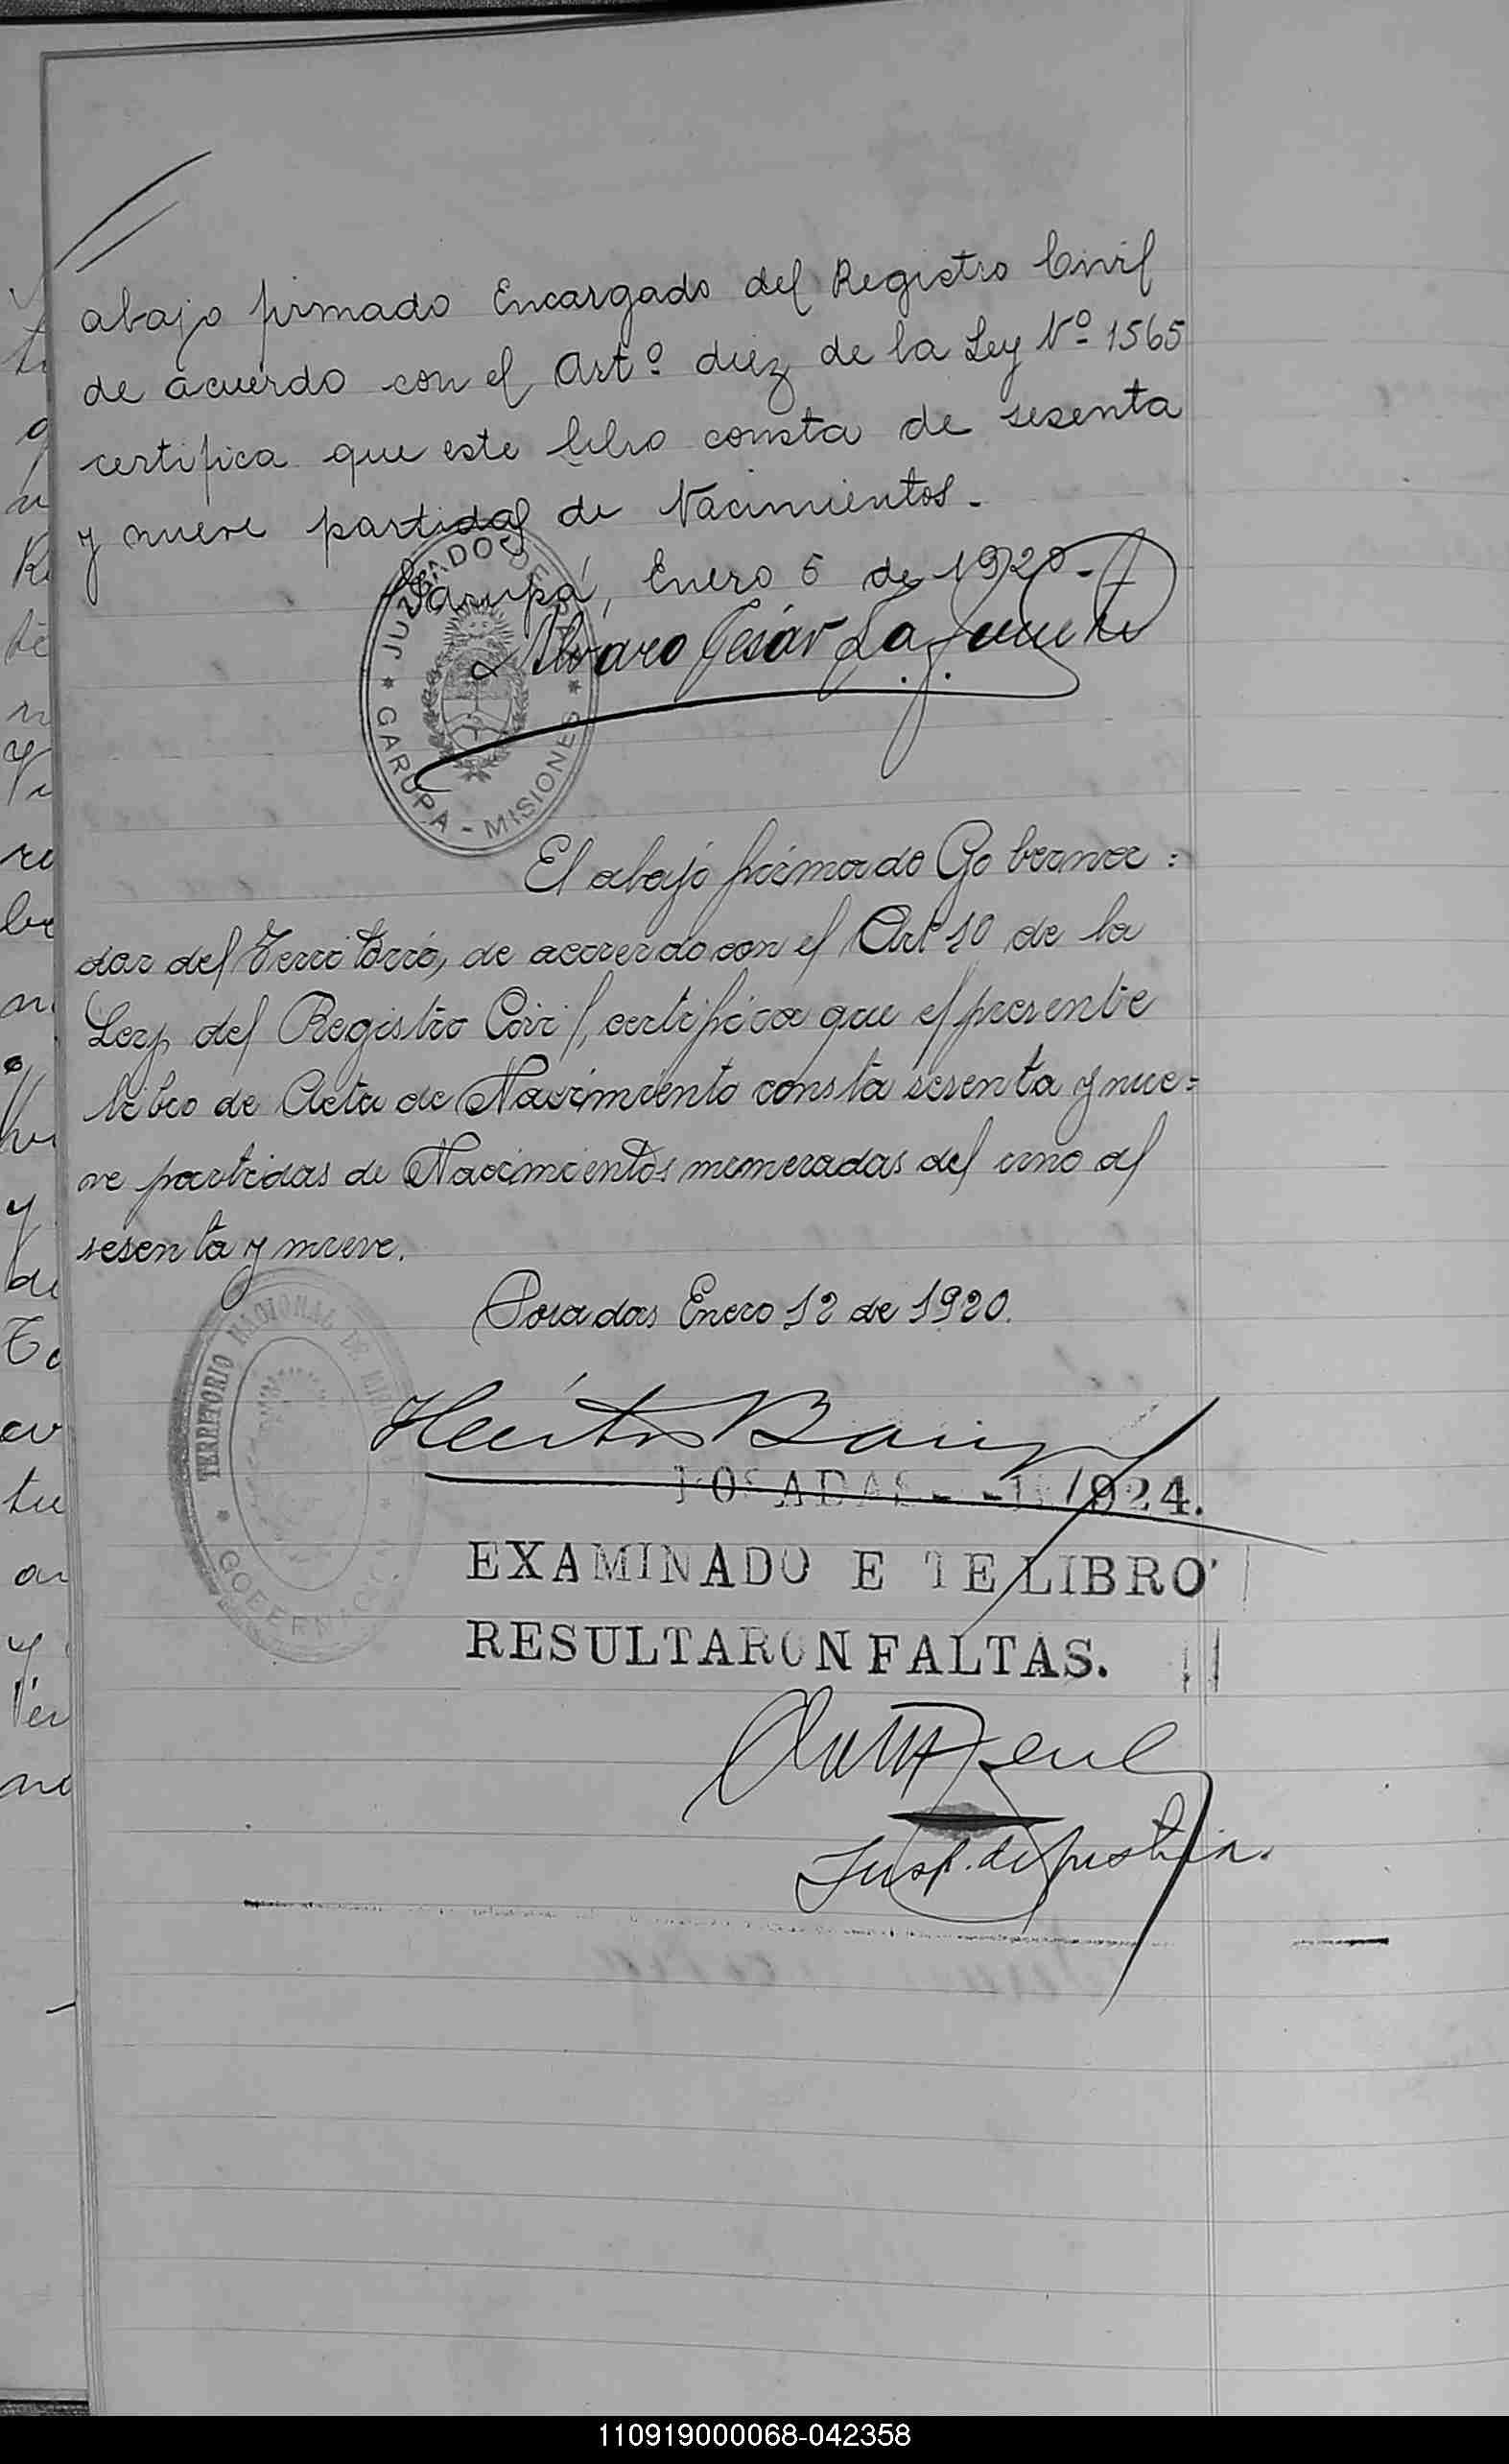 abajo firmado Encargado del Registro Civil
de acuerdo con el Artº diez de la Ley Nº 1565
certifica que este libro consta de sesenta
y nueve partidas de Nacimientos.
Garupá, Enero 5 de 1920.
Alvaro César Lafuente
JUZGADO DE PAZ
* GARUPA - MISIONES *
El abajo firmado Goberna=
dor del Territorio, de acuerdo con el Artº 10 de la
Ley del Registro Civil, certifica que el presente
libro de Acta de Nacimiento consta sesenta y nue=
ve partidas de Nacimientos numeradas del uno al
sesenta y nueve.
Posadas Enero 12 de 1920.
TERRITORIO NACIONAL DE MISIONES
* GOBERNACION *
Hector
POSADAS - 1924.
EXAMINADO E TE LIBRO
RESULTARON FALTAS.
Insp. de justicia.
110919000068-042358